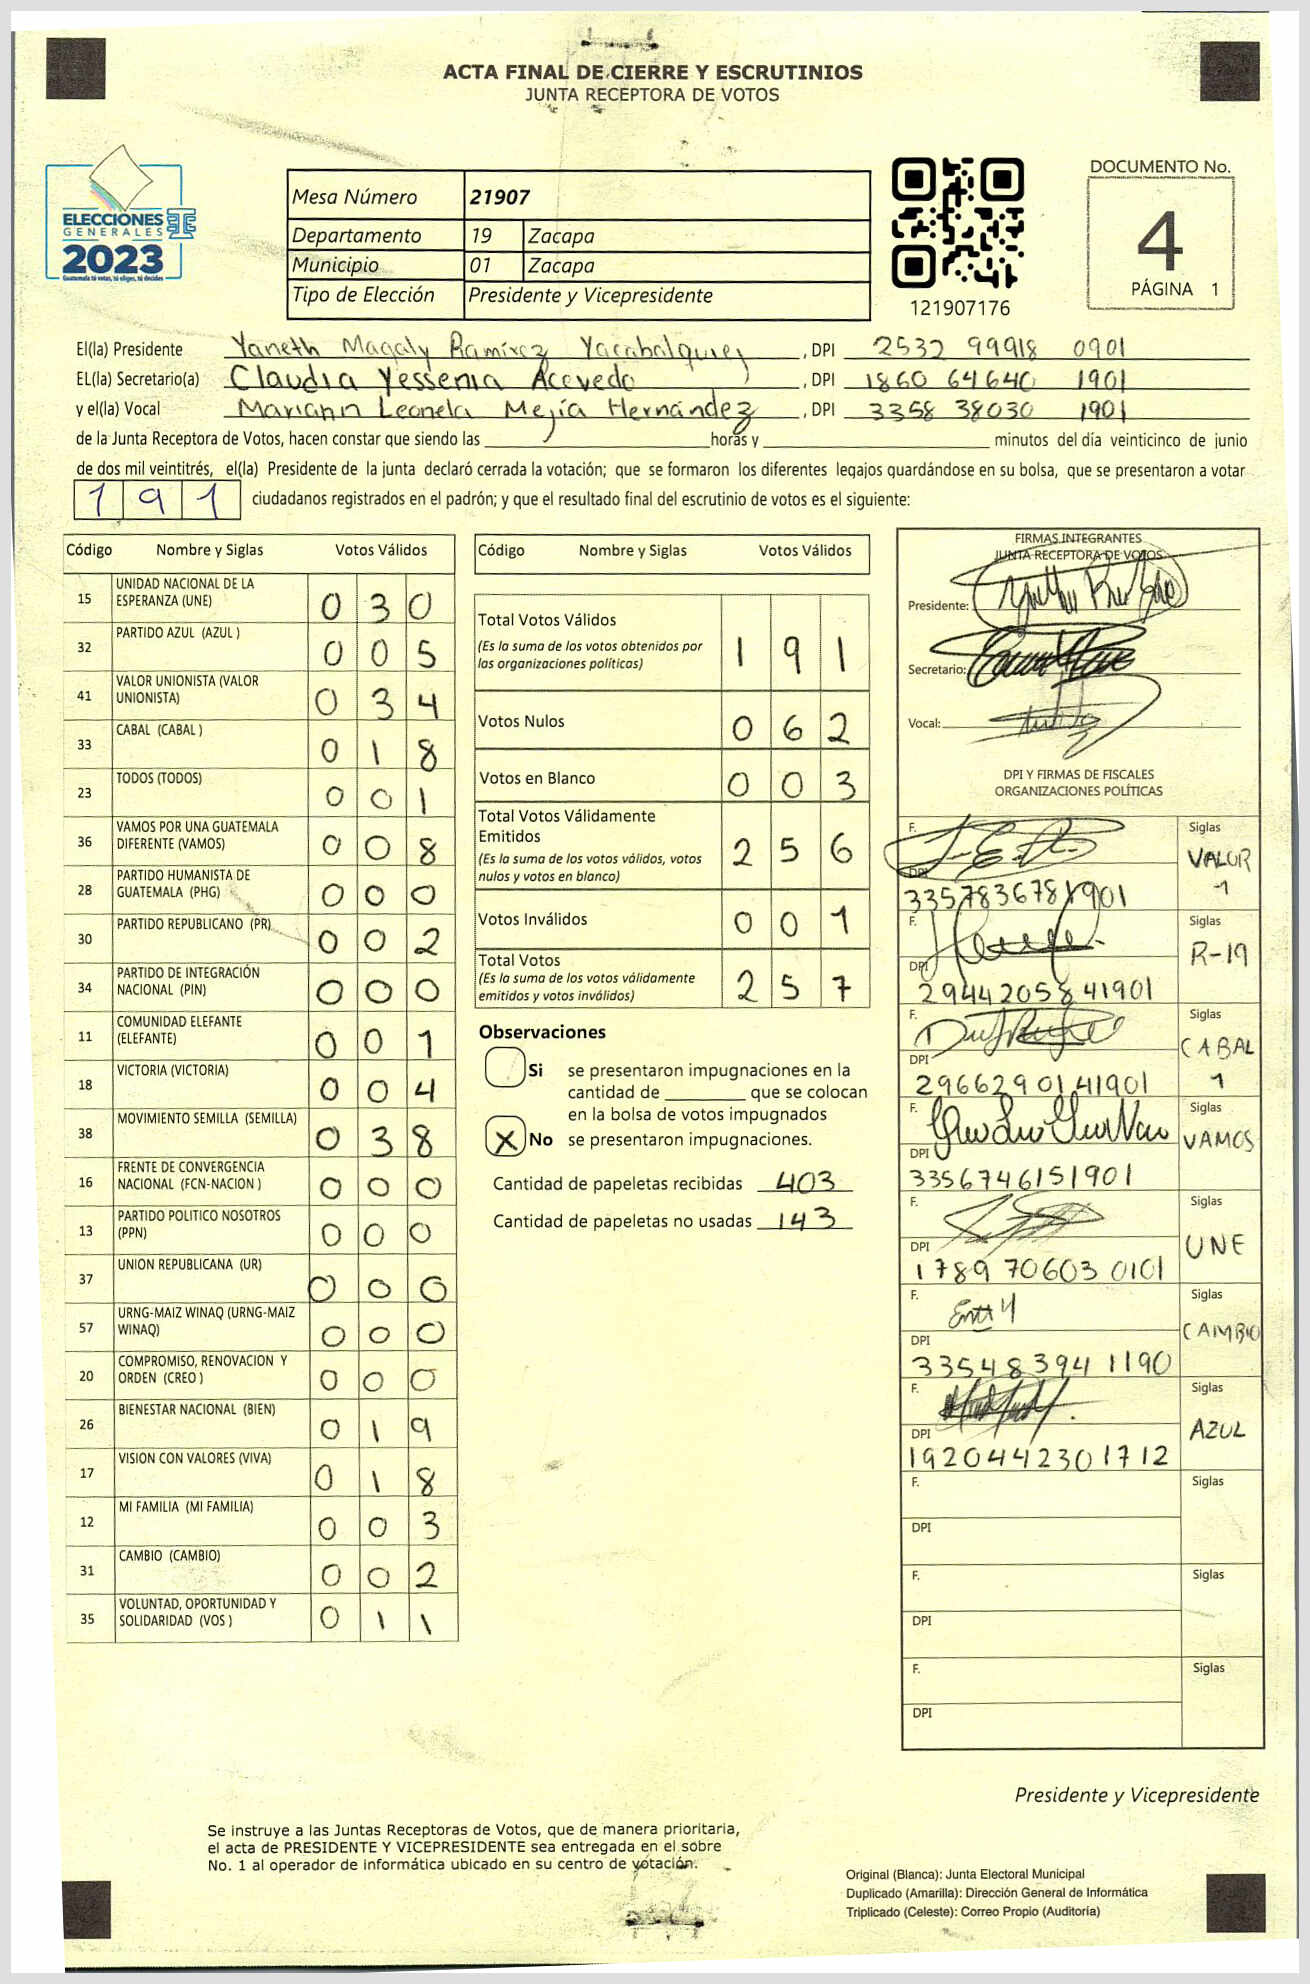 ACTA FINAL DE CIERRE Y ESCRUTINIOS
JUNTA RECEPTORA DE VOTOS
ELECCIONES
GENERALES
2023
Guatemala tú votas, tú eliges, tú decides
Mesa Número 21907
Departamento 19 Zacapa
Municipio 01 Zacapa
Tipo de Elección Presidente y Vicepresidente
121907176
DOCUMENTO No.
4
PÁGINA 1
El(la) Presidente Yaneth Magaly Ramírez , DPI 2532 99918 0901
EL(la) Secretario(a) Claudia Yessenia Acevedo , DPI 1860 64640 1901
y el(la) Vocal Mariann Leonela Mejía Hernández , DPI 3358 38030 1901
de la Junta Receptora de Votos, hacen constar que siendo las horas y minutos del día veinticinco de junio
de dos mil veintitrés, el(la) Presidente de la junta declaró cerrada la votación; que se formaron los diferentes legajos guardándose en su bolsa, que se presentaron a votar
191 ciudadanos registrados en el padrón; y que el resultado final del escrutinio de votos es el siguiente:
Código Nombre y Siglas Votos Válidos
15 UNIDAD NACIONAL DE LA ESPERANZA (UNE) 0 3 0
32 PARTIDO AZUL (AZUL ) 0 0 5
41 VALOR UNIONISTA (VALOR UNIONISTA) 0 3 4
33 CABAL (CABAL ) 0 1 8
23 TODOS (TODOS) 0 0 1
36 VAMOS POR UNA GUATEMALA DIFERENTE (VAMOS) 0 0 8
28 PARTIDO HUMANISTA DE GUATEMALA (PHG) 0 0 0
30 PARTIDO REPUBLICANO (PR) 0 0 2
34 PARTIDO DE INTEGRACIÓN NACIONAL (PIN) 0 0 0
11 COMUNIDAD ELEFANTE (ELEFANTE) 0 0 1
18 VICTORIA (VICTORIA) 0 0 4
38 MOVIMIENTO SEMILLA (SEMILLA) 0 3 8
16 FRENTE DE CONVERGENCIA NACIONAL (FCN-NACION ) 0 0 0
13 PARTIDO POLITICO NOSOTROS (PPN) 0 0 0
37 UNION REPUBLICANA (UR) 0 0 0
57 URNG-MAIZ WINAQ (URNG-MAIZ WINAQ) 0 0 0
20 COMPROMISO, RENOVACION Y ORDEN (CREO ) 0 0 0
26 BIENESTAR NACIONAL (BIEN) 0 1 9
17 VISION CON VALORES (VIVA) 0 1 8
12 MI FAMILIA (MI FAMILIA) 0 0 3
31 CAMBIO (CAMBIO) 0 0 2
35 VOLUNTAD, OPORTUNIDAD Y SOLIDARIDAD (VOS ) 0 1 1
Código Nombre y Siglas Votos Válidos
Total Votos Válidos 1 9 1
(Es la suma de los votos obtenidos por
las organizaciones políticas)
Votos Nulos 0 6 2
Votos en Blanco 0 0 3
Total Votos Válidamente
Emitidos 2 5 6
(Es la suma de los votos válidos, votos
nulos y votos en blanco)
Votos Inválidos 0 0 1
Total Votos 2 5 7
(Es la suma de los votos válidamente
emitidos y votos inválidos)
Observaciones
Si se presentaron impugnaciones en la
cantidad de que se colocan
en la bolsa de votos impugnados
X No se presentaron impugnaciones.
Cantidad de papeletas recibidas 403
Cantidad de papeletas no usadas 143
FIRMAS INTEGRANTES
JUNTA RECEPTORA DE VOTOS
Presidente:
Secretario:
Vocal:
DPI Y FIRMAS DE FISCALES
ORGANIZACIONES POLÍTICAS
F. Siglas
VALOR
1
DPI
F. Siglas
R-19
DPI
2944205841901
F. Siglas
CABAL
1
DPI
2966290141901
F. Siglas
VAMOS
DPI
3356746151901
F. Siglas
UNE
DPI
1789 70603 0101
F. Siglas
CAMBIO
DPI
335483941190
F. Siglas
AZUL
DPI
1920442301712
F. Siglas
DPI
F. Siglas
DPI
F. Siglas
DPI
Presidente y Vicepresidente
Se instruye a las Juntas Receptoras de Votos, que de manera prioritaria,
el acta de PRESIDENTE Y VICEPRESIDENTE sea entregada en el sobre
No. 1 al operador de informática ubicado en su centro de votación.
Original (Blanca): Junta Electoral Municipal
Duplicado (Amarilla): Dirección General de Informática
Triplicado (Celeste): Correo Propio (Auditoría)